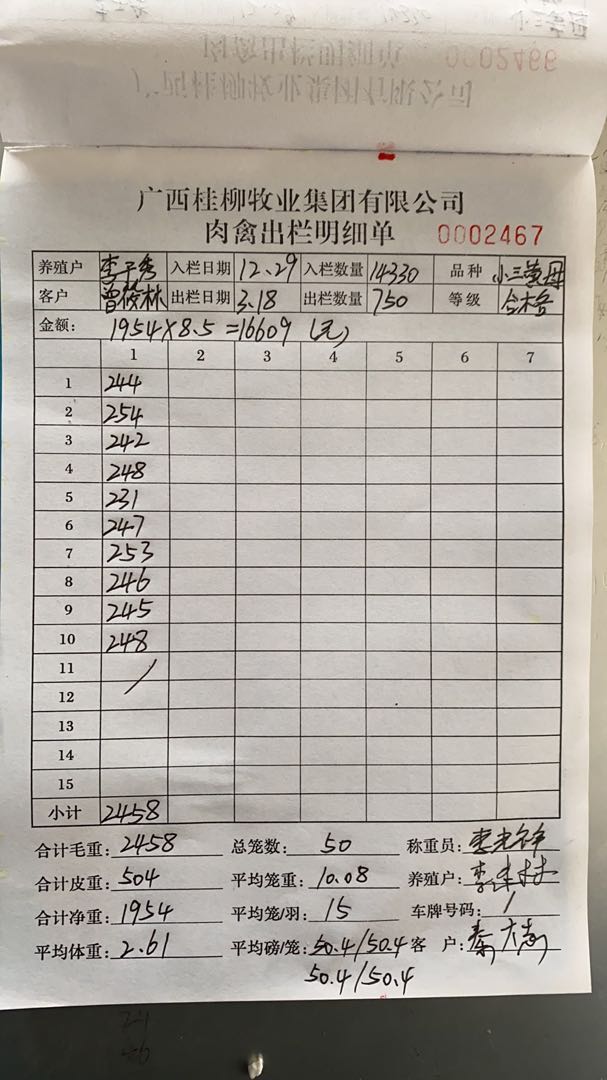 0002466
广西桂柳牧业集团有限公司
肉禽出栏明细单 0002467
养殖户 李子秀 入栏日期 12.29 入栏数量 14330 品种 小三黄母
客户 曾筱林 出栏日期 3.18 出栏数量 750 等级 合格
金额: 1954×8.5=16609(元)
1 2 3 4 5 6 7
1 244
2 254
3 242
4 248
5 231
6 247
7 253
8 246
9 245
10 248
11
12
13
14
15
小计 2458
合计毛重: 2458 总笼数: 50 称重员:
合计皮重: 504 平均笼重: 10.08 养殖户:
合计净重: 1954 平均笼/羽: 15 车牌号码: /
平均体重: 2.61 平均磅/笼: 50.4/50.4 客 户:
50.4/50.4